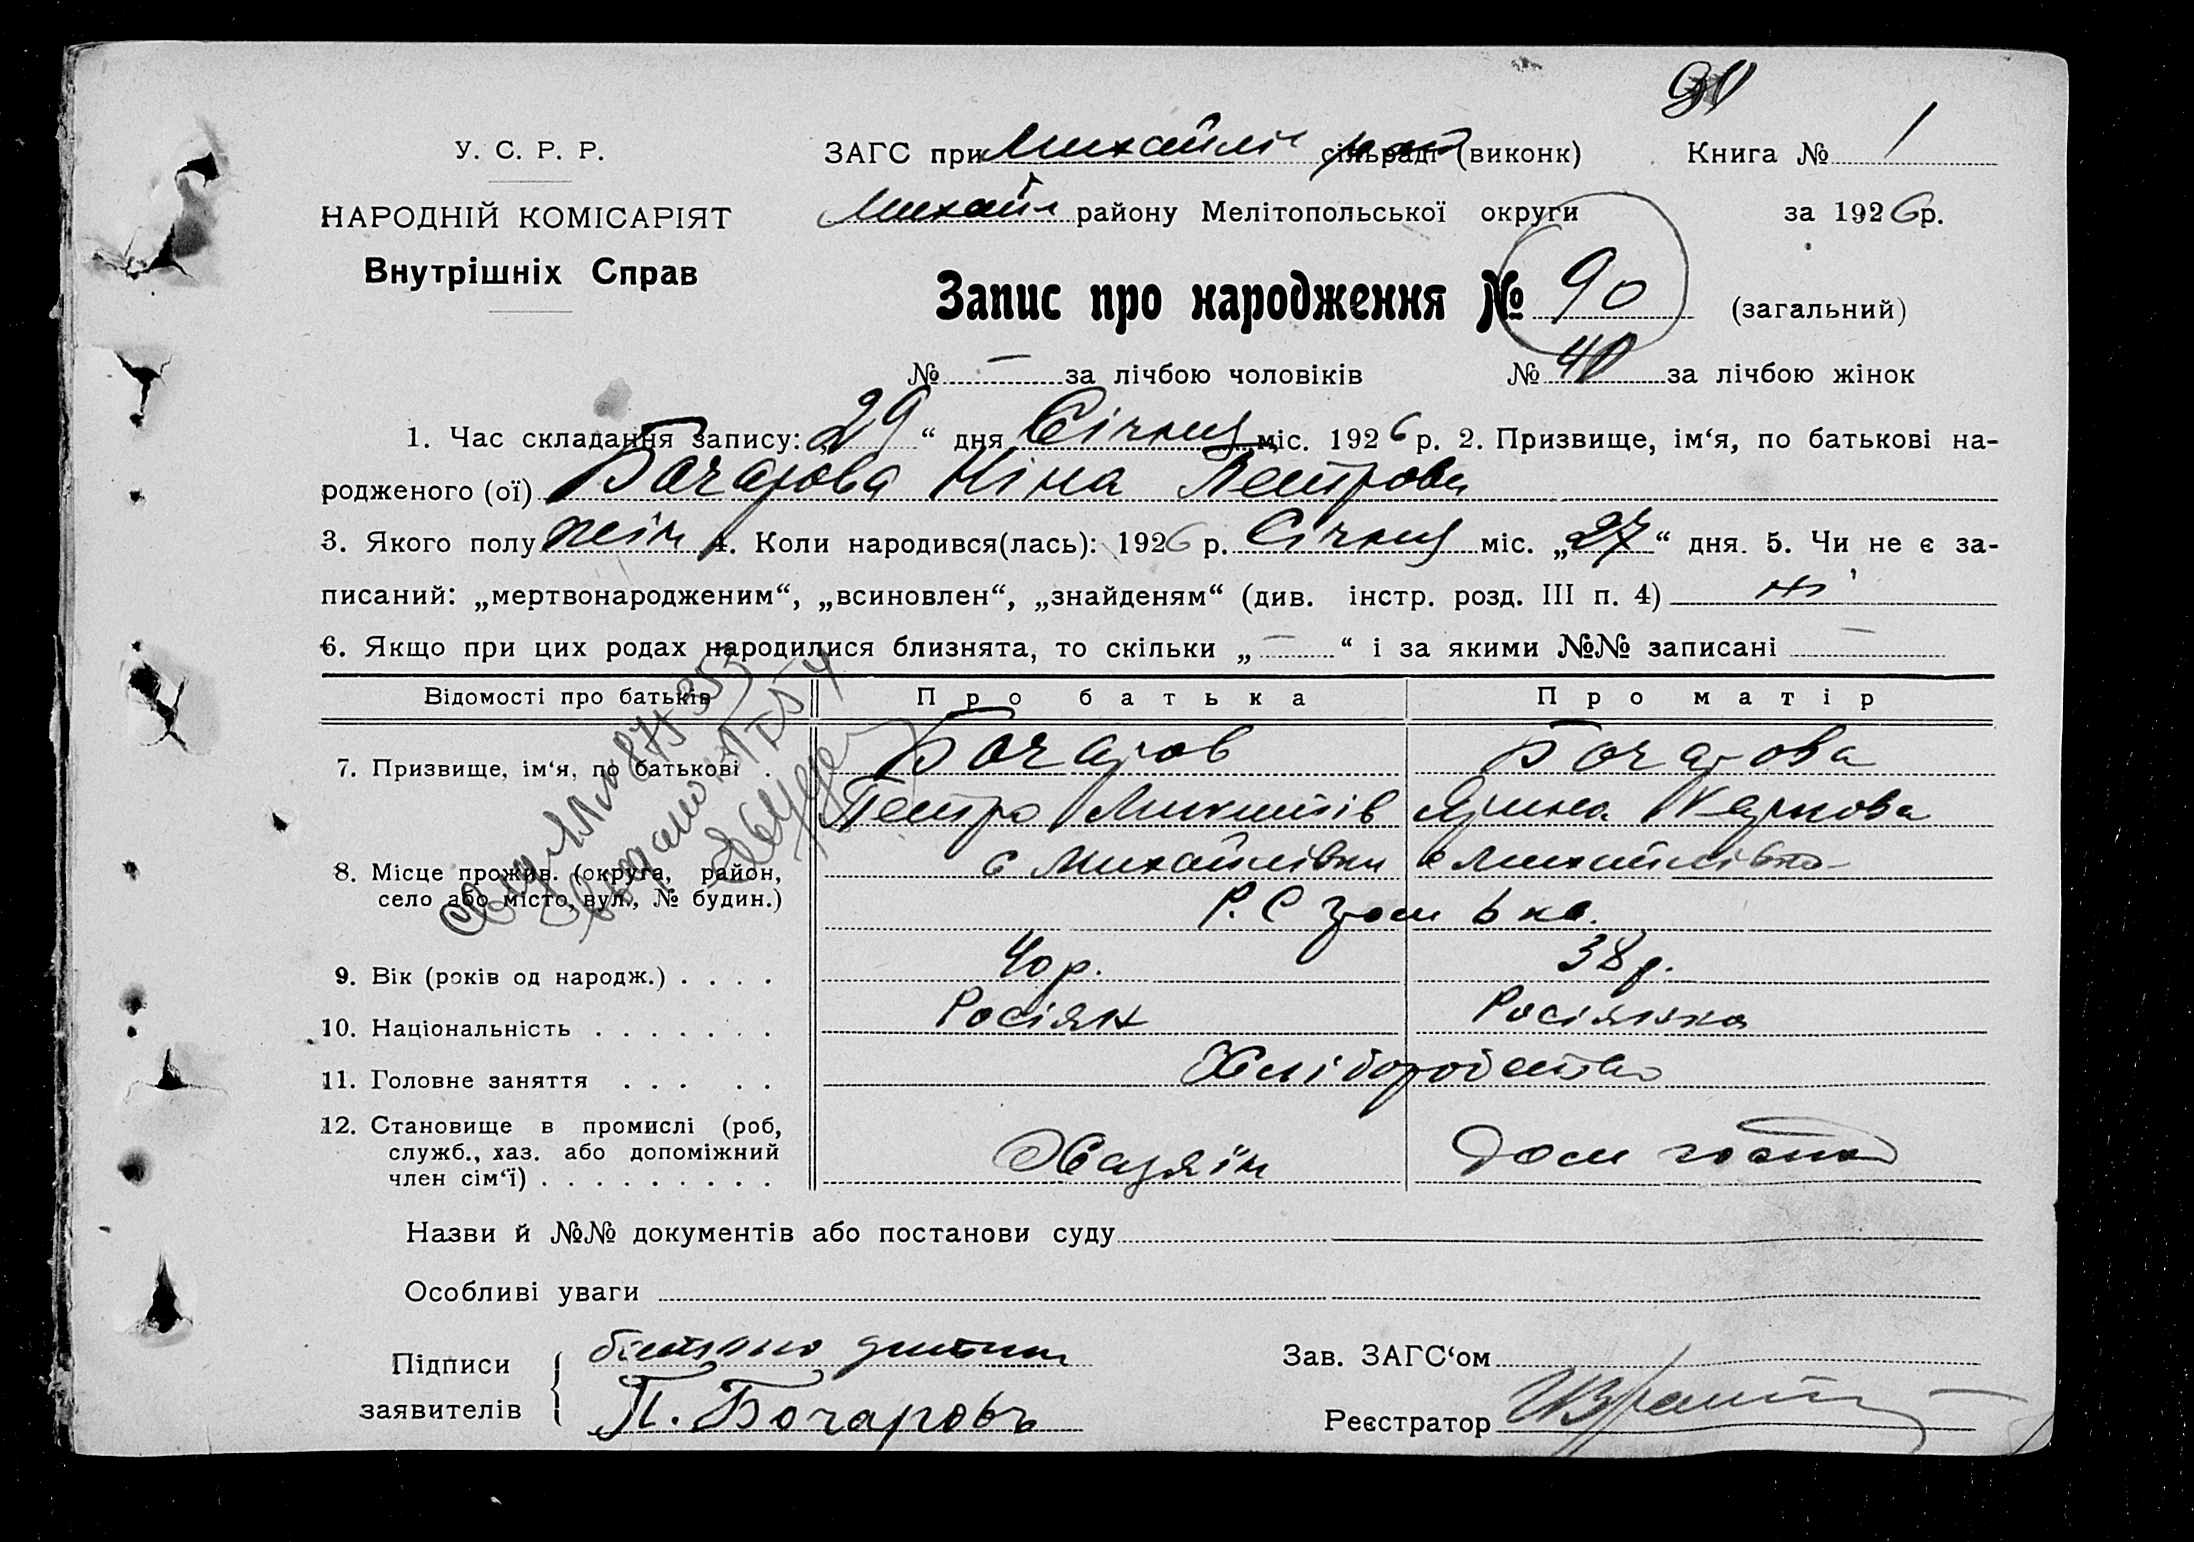 У. С. Р. Р.
НАРОДНІЙ КОМІСАРІЯТ
Внутрішніх Справ
ЗАГС при Михайлів сільраді (виконк) Книга № 1
Михайл району Мелітопольської округи за 1926 р.
Запис про народження № 90 (загальний)
№ — за лічбою чоловіків № 40 за лічбою жінок
1. Час складання запису: 29 “ дня Січня міс. 1926 р. 2. Призвище, ім‘я, по батькові на-
родженого (ої) Бочарова Ніна Петрова
3. Якого полу жін 4. Коли народився(лась): 1926 р. Січня міс. „27“ дня. 5. Чи не є за-
писаний: „мертвонародженим“, „всиновлен“, „знайденям“ (див. інстр. розд. III п. 4) ні
6. Якщо при цих родах народилися близнята, то скільки „—“ і за якими №№ записані —
Відомості про батьків Про батька Про матір
7. Призвище, ім‘я, по батькові . Бочаров Бочарова
Петро Микитів Ярина Карпова
8. Місце прожив. (округа, район, с Михайлівки с Михайлівка
село або місто, вул., № будин.) Р. С 6 кв.
9. Вік (років од народж.) . . . . 40 р. 38 р.
10. Національність . . . . . . . Росіян Росіянка
11. Головне заняття . . . . . Хліборобство
12. Становище в промислі (роб,
служб., хаз. або допоміжний Хазяїн Дом госпо
член сім‘ї) . . . . . . . . .
Назви й №№ документів або постанови суду
Особливі уваги
Підписи Зав. ЗАГС‘ом
заявителів П. Бочаровъ Реєстратор